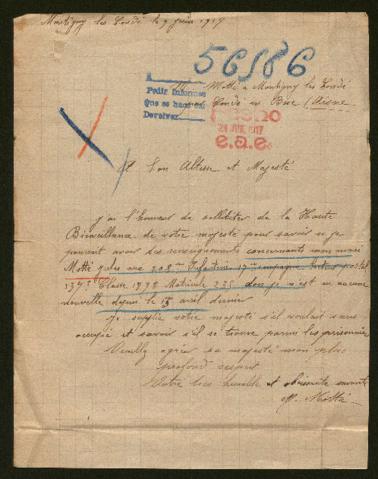 Montigny les Condé le 9 juin 1917
56586
Mme Motté a Montigny les Condé
Pedir Informes
que se hagan
Devolver
par Condé en Brie (Aisne
24 JUN. 1917
e.a.e.
A Son Altesse et Majesté
j'ai l'honneur de solliciter de la Haute
Bienveillance de votre majesté pour savoir si je
pourrait avoir des renseignements concernants mon mari
Motté Jules au 208me Infanterie 17me compagnie Secteur postal
Classe 1898 Matricule 235 don je n'est eu aucune
nouvelle depui le avril dernier
Je suplie votre majesté s'il voulait s'en
occupé et savoir s'il se trouve parmi les prisonnier
Veuillez agréer sa majesté mon plus
profond respect
Votre très humble et obéissante servante
M. Motté